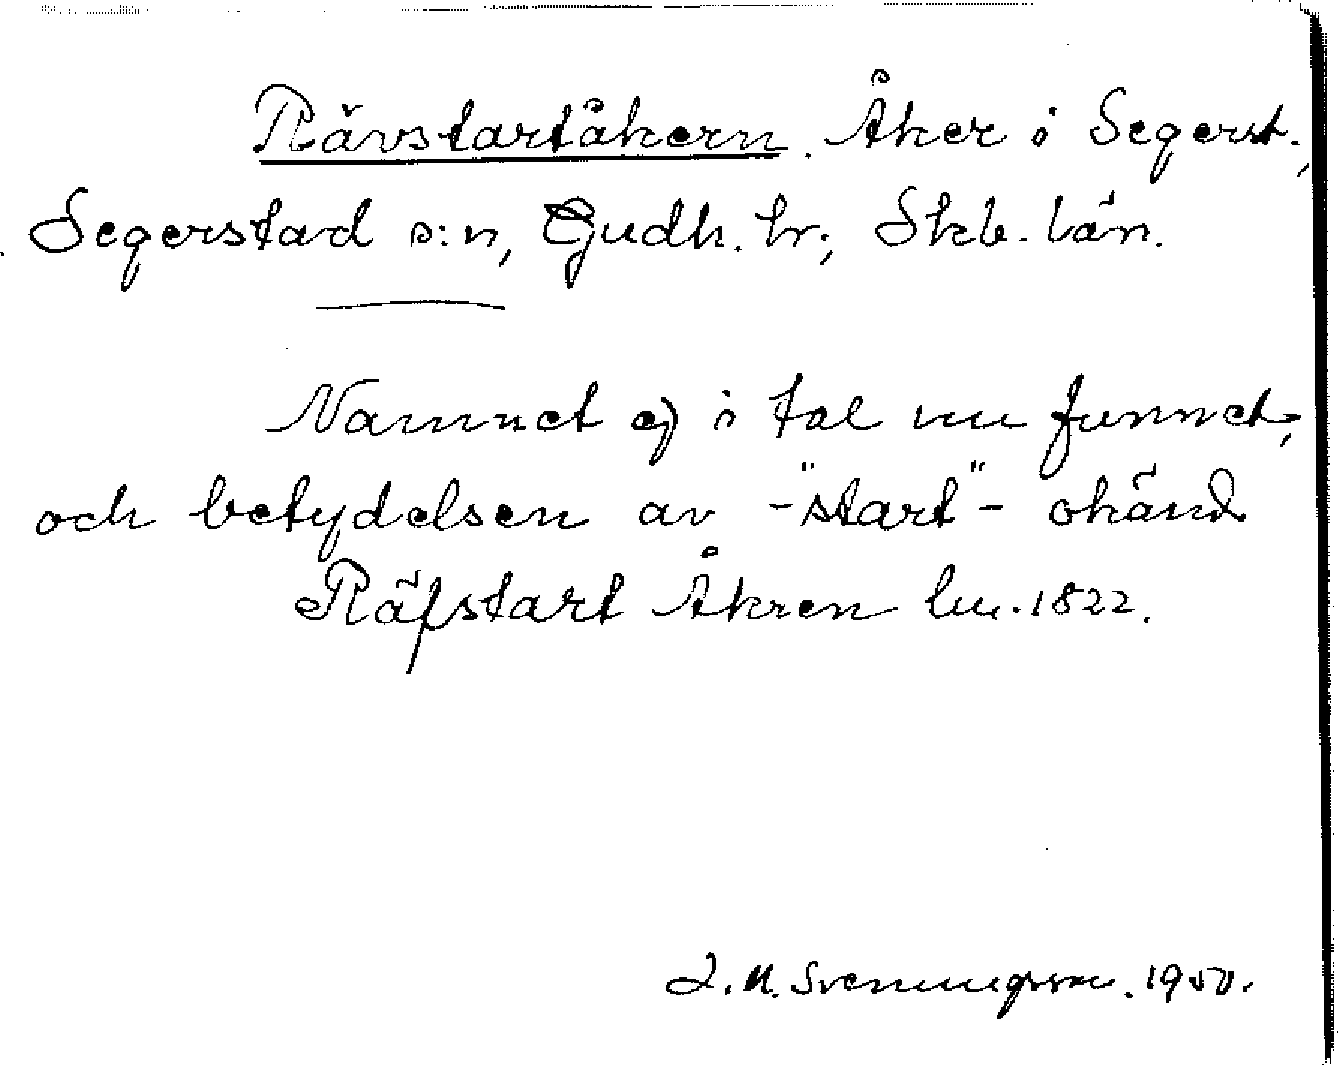 Rävstartåkern. Åker i Segerst.,
Segerstad s:n, Gudh. hr., Skb. län.
Namnet ej i tal nu funnet,
och betydelsen av -"start"- okänd
Räfstart Åkren lm. 1822.
J. M. Svenungsson. 1950.